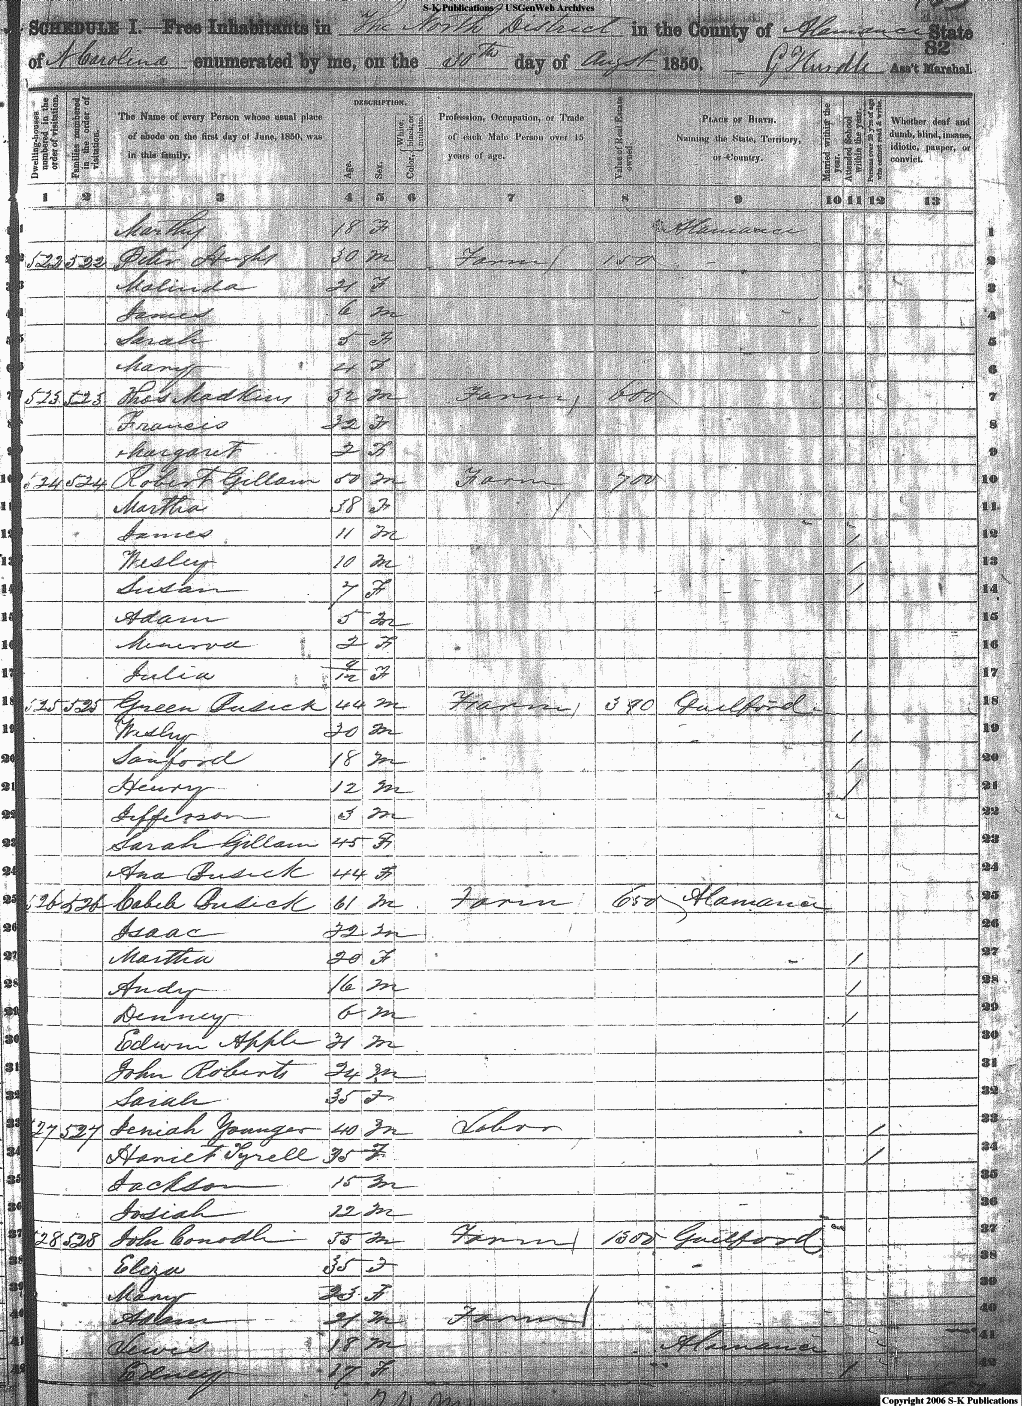 S-K Publications USGenWeb Archives
SCHEDULE I.—Free Inhabitants in The North District in the County of Alamance State
82
of N Carolina enumerated by me, on the 30th day of Augst 1850. G Hurdle Ass't Marshal
Dwelling-houses numbered in the order of visitation.
Families numbered in the order of visitation.
The Name of every Person whose usual place of abode on the first day of June, 1850, was in this family.
DESCRIPTION.
Age.
Sex.
White, black, or mulatto.
Color,
Profession, Occupation, or Trade of each Male Person over 15 years of age.
Value of Real Estate owned.
PLACE OF BIRTH. Naming the State, Territory, or Country.
Married within the year.
Attended School within the year.
Persons over 20 y'rs of age who cannot read & write.
Whether deaf and dumb, blind, insane, idiotic, pauper, or convict.
1 2 3 4 5 6 7 8 9 10 11 12 13
1 Marthy 18 F Alamance 1
2 522 522 Peter Hughs 30 M Farm 150 2
3 Malinda 21 F 3
4 James 6 M 4
5 Sarah 5 F 5
6 Mary 4 F 6
7 523 523 Thos Madkins 32 M Farm 600 7
8 Francis 32 F 8
9 Margaret 2 F 9
10 524 524 Robert Gillam 50 M Farm 700 10
11 Martha 38 F 11
12 James 11 M / 12
13 Wesley 10 M / 13
14 Susan 7 F / 14
15 Adam 5 M 15
16 Minerva 2 F 16
17 Julia 9/12 F 17
18 525 525 Green Busick 44 M Farm 390 Guilford 18
19 Wesley 20 M / 19
20 Sanford 18 M / 20
21 Henry 12 M / 21
22 Jefferson 3 M 22
23 Sarah Gillam 45 F 23
24 Ana Busick 44 F 24
25 526 526 Caleb Busick 61 M Farm 650 Alamance 25
26 Isaac 22 M 26
27 Martha 20 F / 27
28 Andy 16 M / 28
29 Denney 6 M / 29
30 Edwin Apple 21 M 30
31 John Roberts 24 M 31
32 Sarah 35 F 32
33 527 527 Younger 40 M Labor / 33
34 Hariet Tyrell 35 F / 34
35 Jackson 15 M 35
36 Josiah 12 M 36
37 528 528 John 55 M Farm 1500 Guilford 37
38 Eliza 35 F 38
39 Mary 23 F 39
40 Adam 21 M Farm 40
41 Lewis 18 M Alamance 41
42 Edney 17 F / 42
Copyright 2006 S-K Publications